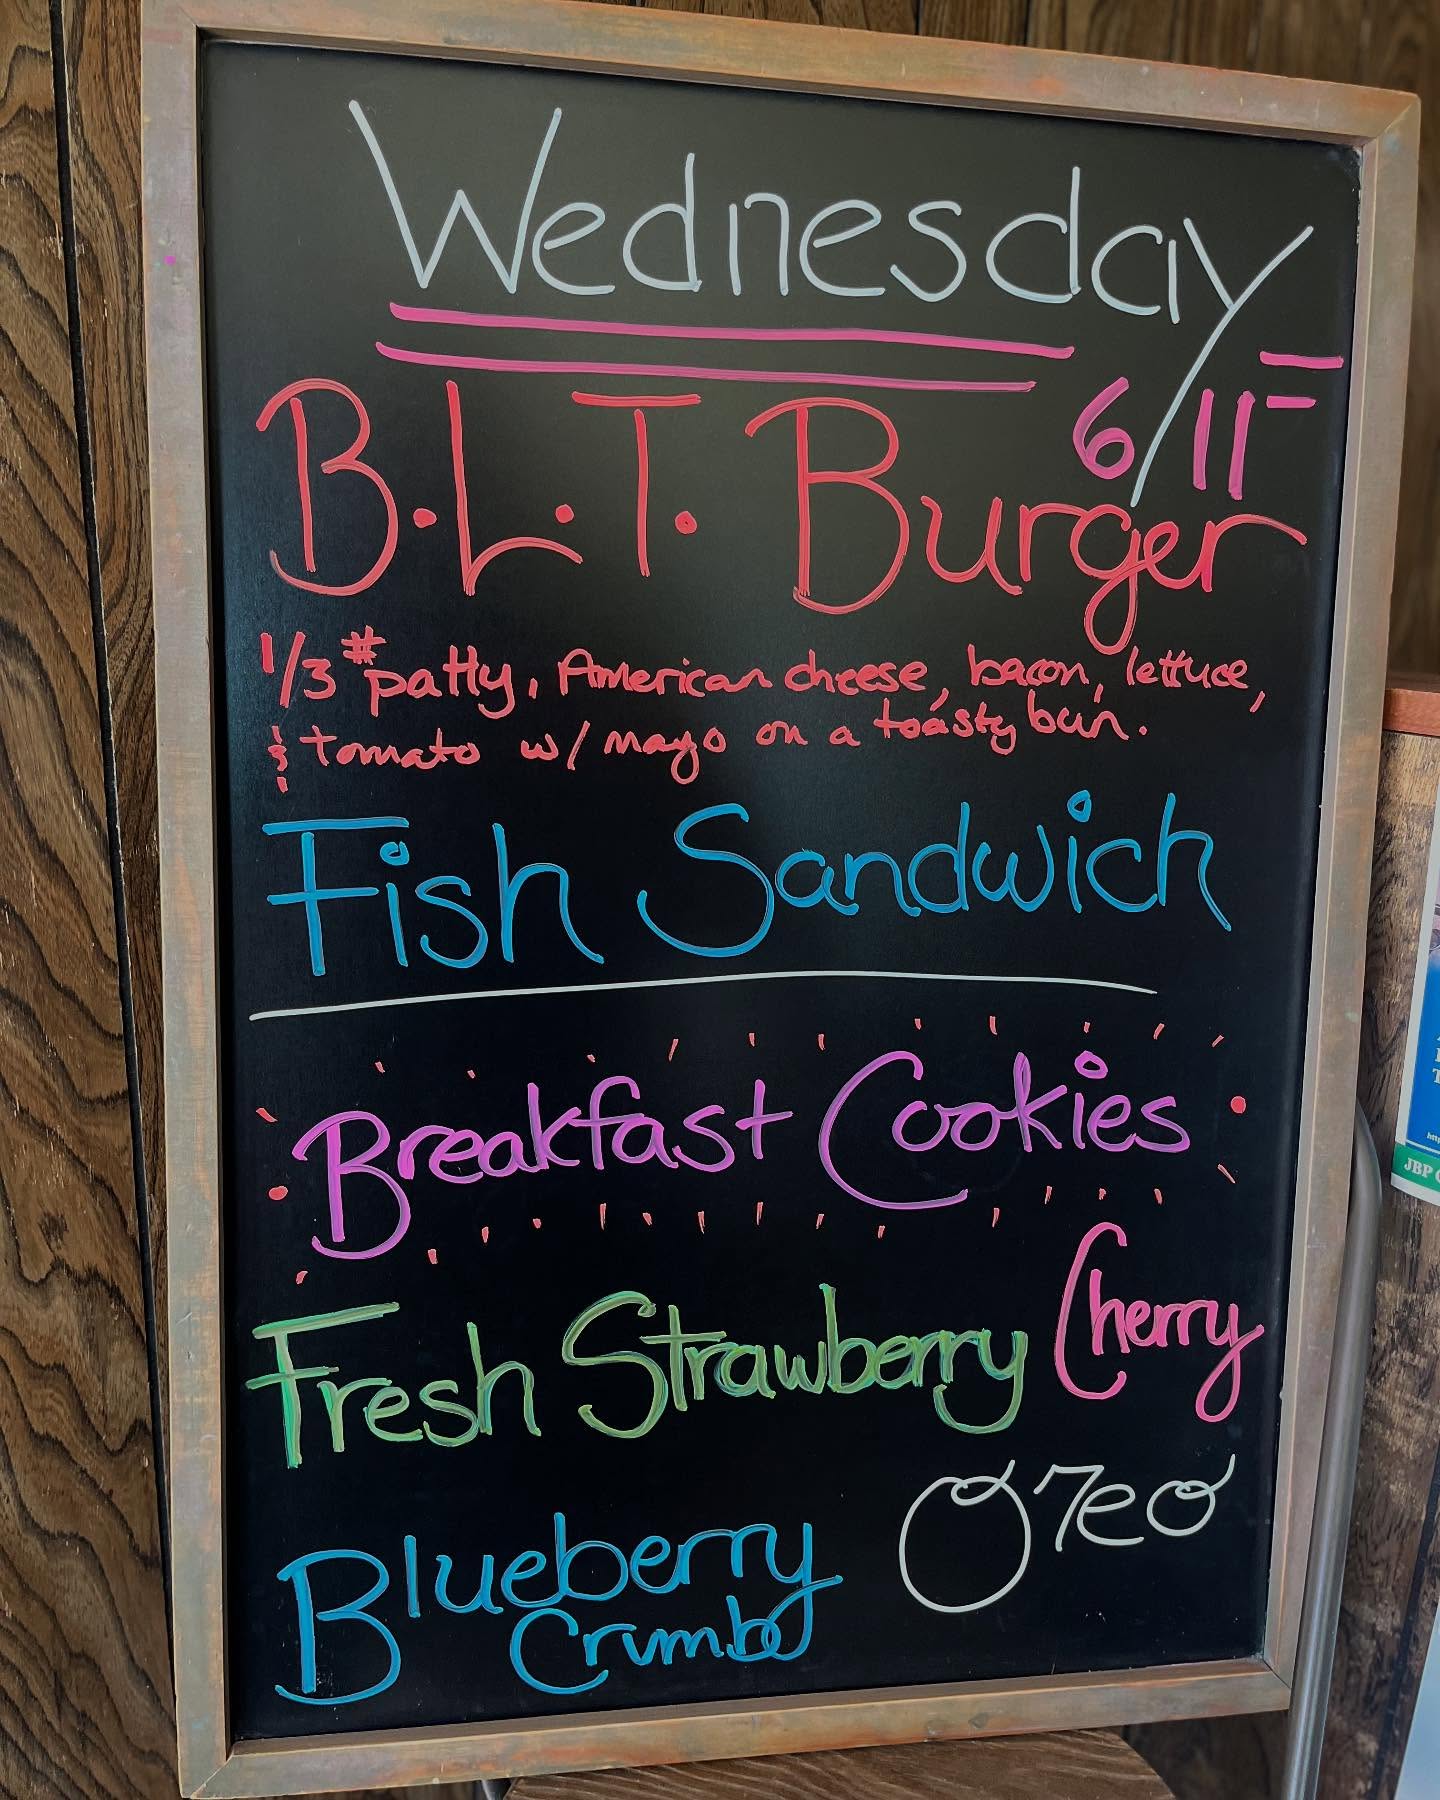 Wednesday
6/11
B.L.T. Burger
1/3 # patty, American cheese, bacon, lettuce,
& tomato w/ mayo on a toasty bun.
Fish Sandwich
Breakfast Cookies
Fresh Strawberry
Cherry
Oreo
Blueberry
Crumb
JBP